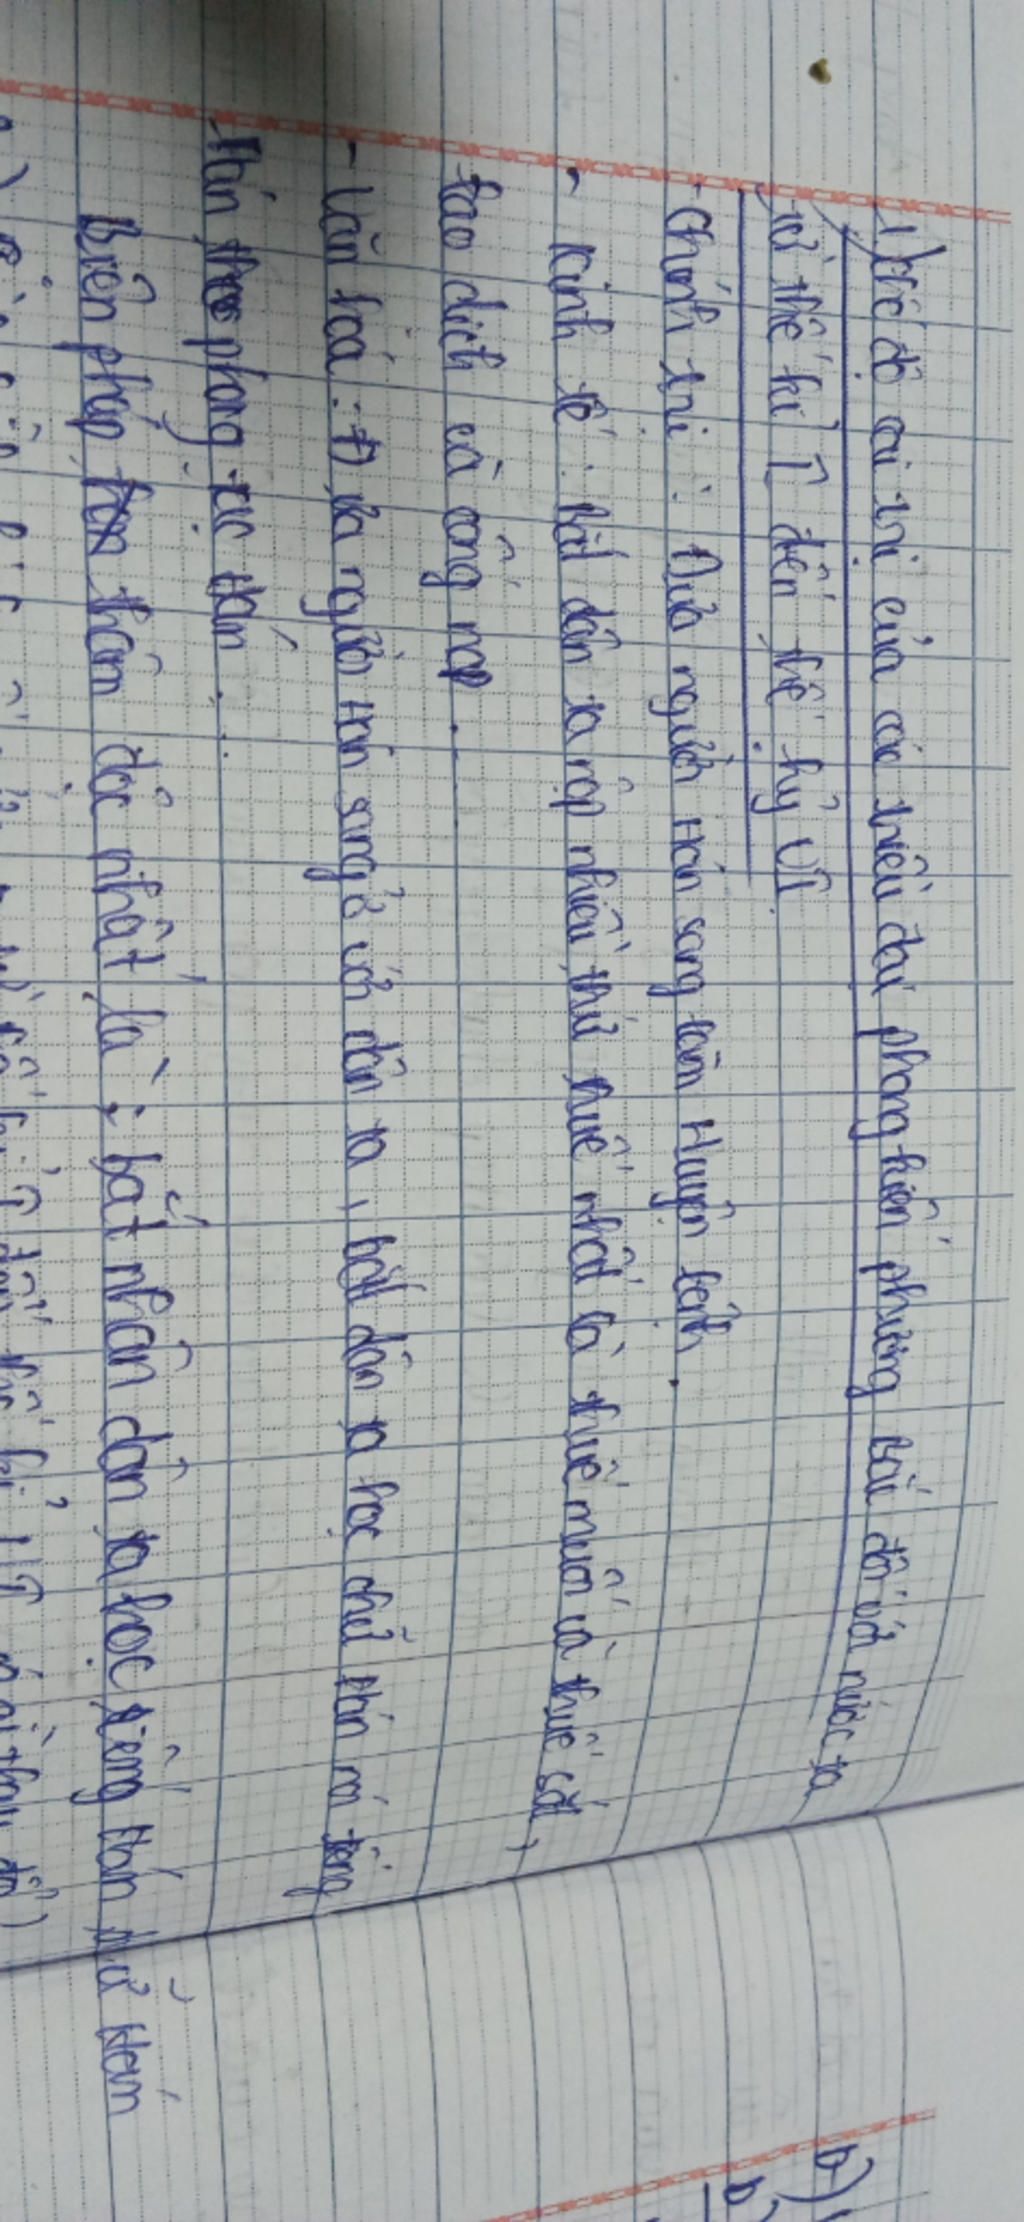 1) Chế độ cai trị của các triều đại phong kiến phương Bắc đối với nước ta
từ thế kỉ I đến thế kỷ VI
- Chính trị : Đưa người Hán sang làm Huyện lệnh.
- Kinh tế : Bắt dân ta nộp nhiều thứ thuế nhất là thuế muối và thuế sắt,
lao dịch và cống nạp.
- Văn hoá : Đưa người Hán sang ở với dân ta, bắt dân ta học chữ Hán nói tiếng
Hán theo phong tục Hán...
Biện pháp thâm độc nhất là : bắt nhân dân ta học tiếng Hán chữ Hán
a)
b)